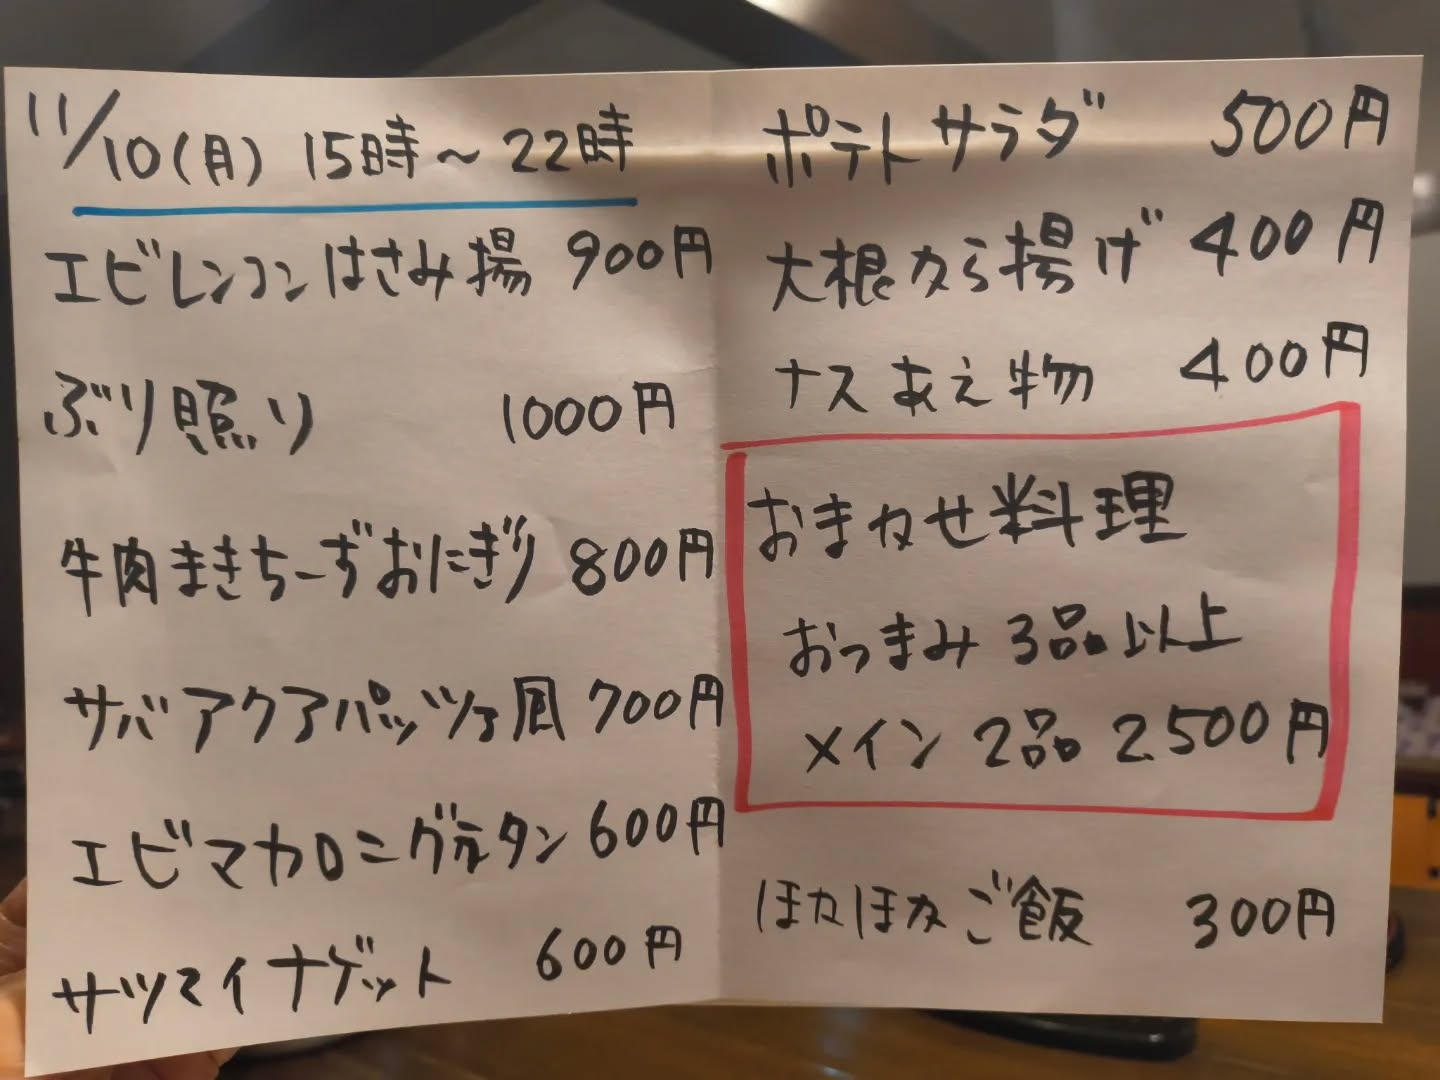 11/10(月) 15時~22時
エビレンコンはさみ揚 900円
ぶり照り 1000円
牛肉まきちーずおにぎり 800円
サバアクアパッツァ風 700円
エビマカロニグラタン 600円
サツマイナゲット 600円
ポテトサラダ 500円
大根から揚げ 400円
ナスあえ物 400円
おまかせ料理
おつまみ 3品以上
メイン 2品 2500円
ほかほかご飯 300円